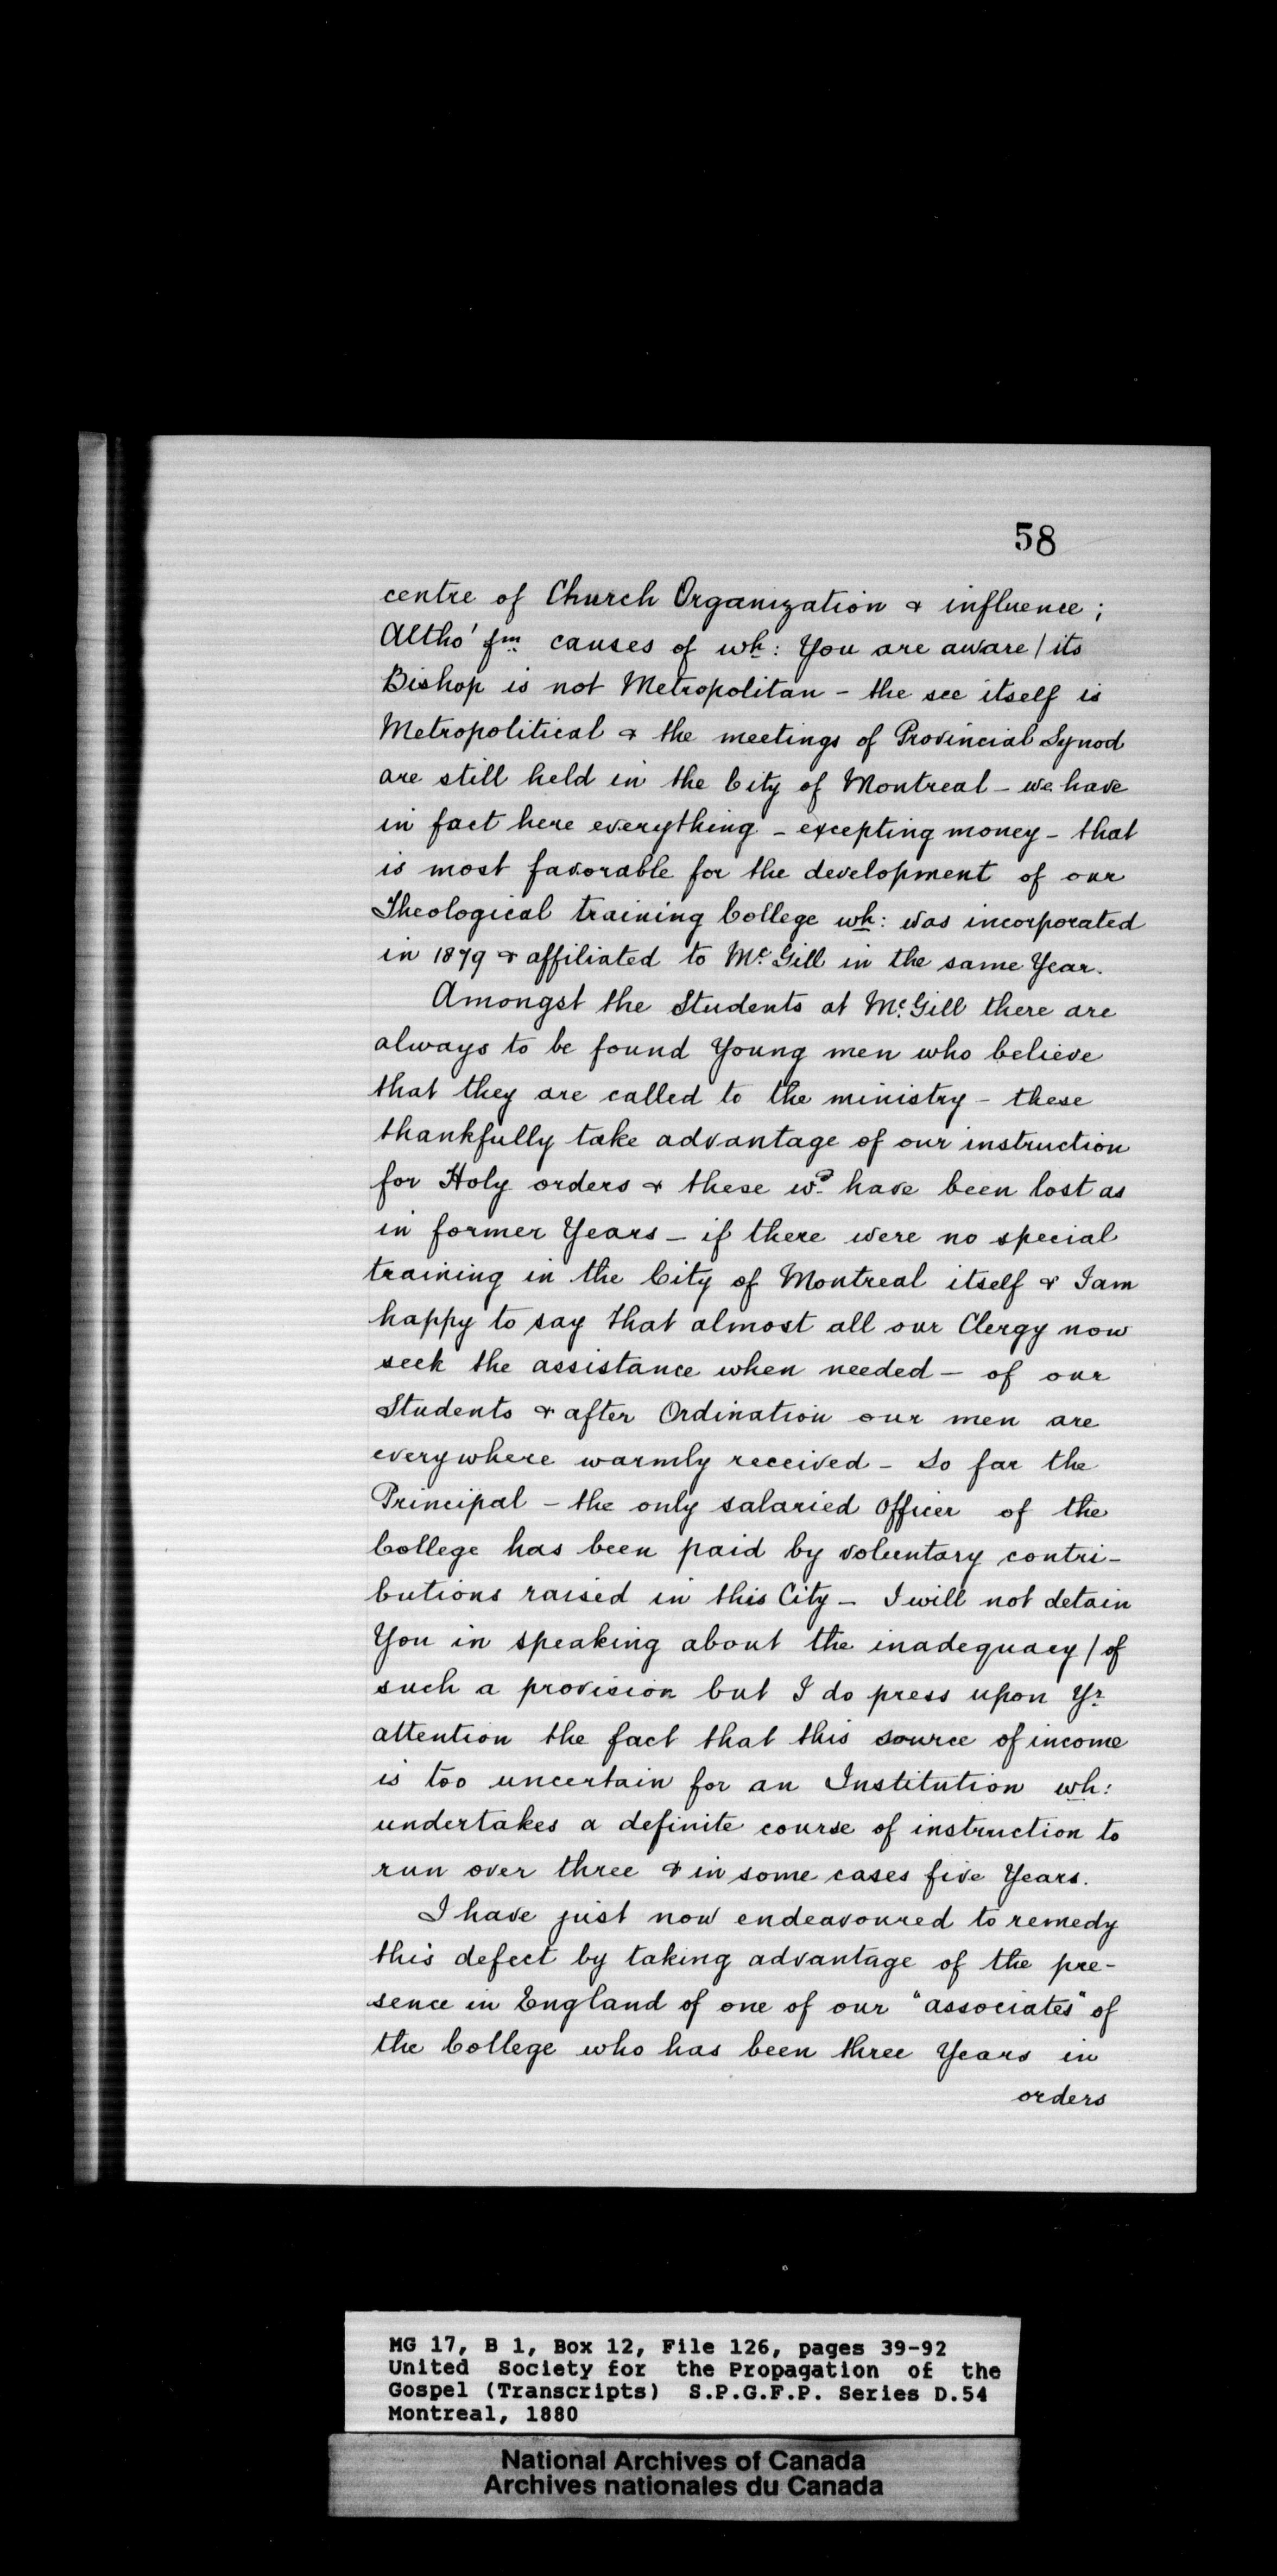 58
centre of Church Organization & influence;
Altho' fm causes of wh: You are aware / its
Bishop is not Metropolitan - the see itself is
Metropolitical & the meetings of Provincial Synod
are still held in the City of Montreal - we have
in fact here everything - excepting money - that
is most favorable for the development of our
Theological training College wh: was incorporated
in 1879 & affiliated to Mc Gill in the same Year.
Amongst the Students at Mc Gill there are
always to be found Young men who believe
that they are called to the ministry - these
thankfully take advantage of our instruction
for Holy orders & these wd have been lost as
in former Years - if there were no special
training in the City of Montreal itself & I am
happy to say that almost all our Clergy now
seek the assistance when needed - of our
Students & after Ordination our men are
everywhere warmly received - So far the
Principal - the only salaried Officer of the
College has been paid by voluntary contri-
butions raised in this City - I will not detain
You in speaking about the inadequacy / of
such a provision but I do press upon Yr
attention the fact that this source of income
is too uncertain for an Institution wh:
undertakes a definite course of instruction to
run over three & in some cases five Years.
I have just now endeavoured to remedy
this defect by taking advantage of the pre-
sence in England of one of our "associates" of
the College who has been three Years in
orders
MG 17, B 1, Box 12, File 126, pages 39-92
United Society for the Propagation of the
Gospel (Transcripts) S.P.G.F.P. Series D.54
Montreal, 1880
National Archives of Canada
Archives nationales du Canada